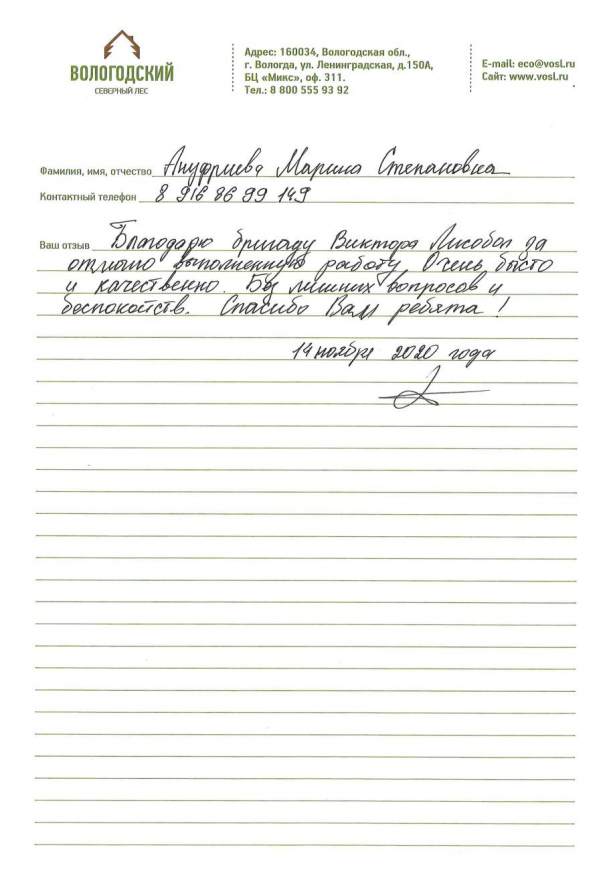 ВОЛОГОДСКИЙ
СЕВЕРНЫЙ ЛЕС
Адрес: 160034, Вологодская обл.,
г. Вологда, ул. Ленинградская, д.150А,
БЦ «Микс», оф. 311.
Тел.: 8 800 555 93 92
E-mail: eco@vosl.ru
Сайт: www.vosl.ru
Фамилия, имя, отчество Ануфриева Марина Степановна
Контактный телефон 8 916 86 99 149
Ваш отзыв Благодарю бригаду Виктора за
отлично выполненную работу. Очень бысто
и качественно. Без лишних вопросов и
беспокойств. Спасибо Вам ребята!
14 ноября 2020 года